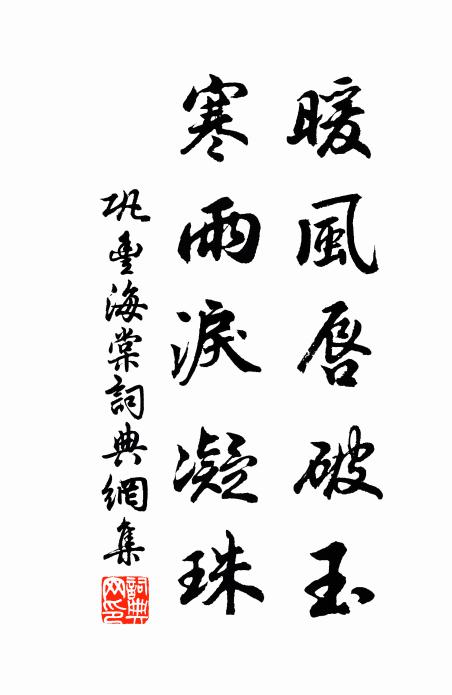 暖風唇破玉
寒雨淚凝珠
巩豊海棠詞典網集
詞典网印